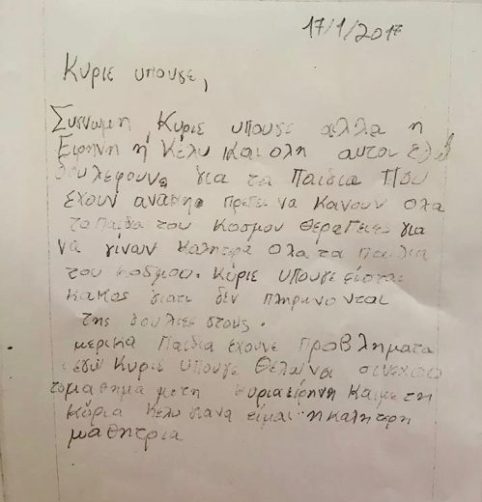 17/1/2017
Κυριε υπουγε,
Συγνωμη Κυριε υπουγε αλλα η
Ειρηνη η Κελυ και ολη αυτοι εδω
δουλεφουν για τα Παιδια που
εχουν αναγκη πρεπει να κανουν ολα
τα παιδια του Κοσμου θεραπειες για
να γινουν καλητερα ολα τα παιδια
του κοσμου. Κυριε υπουγε εισται
κακος γιατι δεν πληρωνονται
της δουλιες στους.
μερικα Παιδια εχουνε Προβληματα
εδω Κυριε υπουγε θελω να συνεχισω
το μαθημα με τη κυρια ειρηνη και με τη
κυρια Κελυ για να ειμαι η καλητερη
μαθητρια